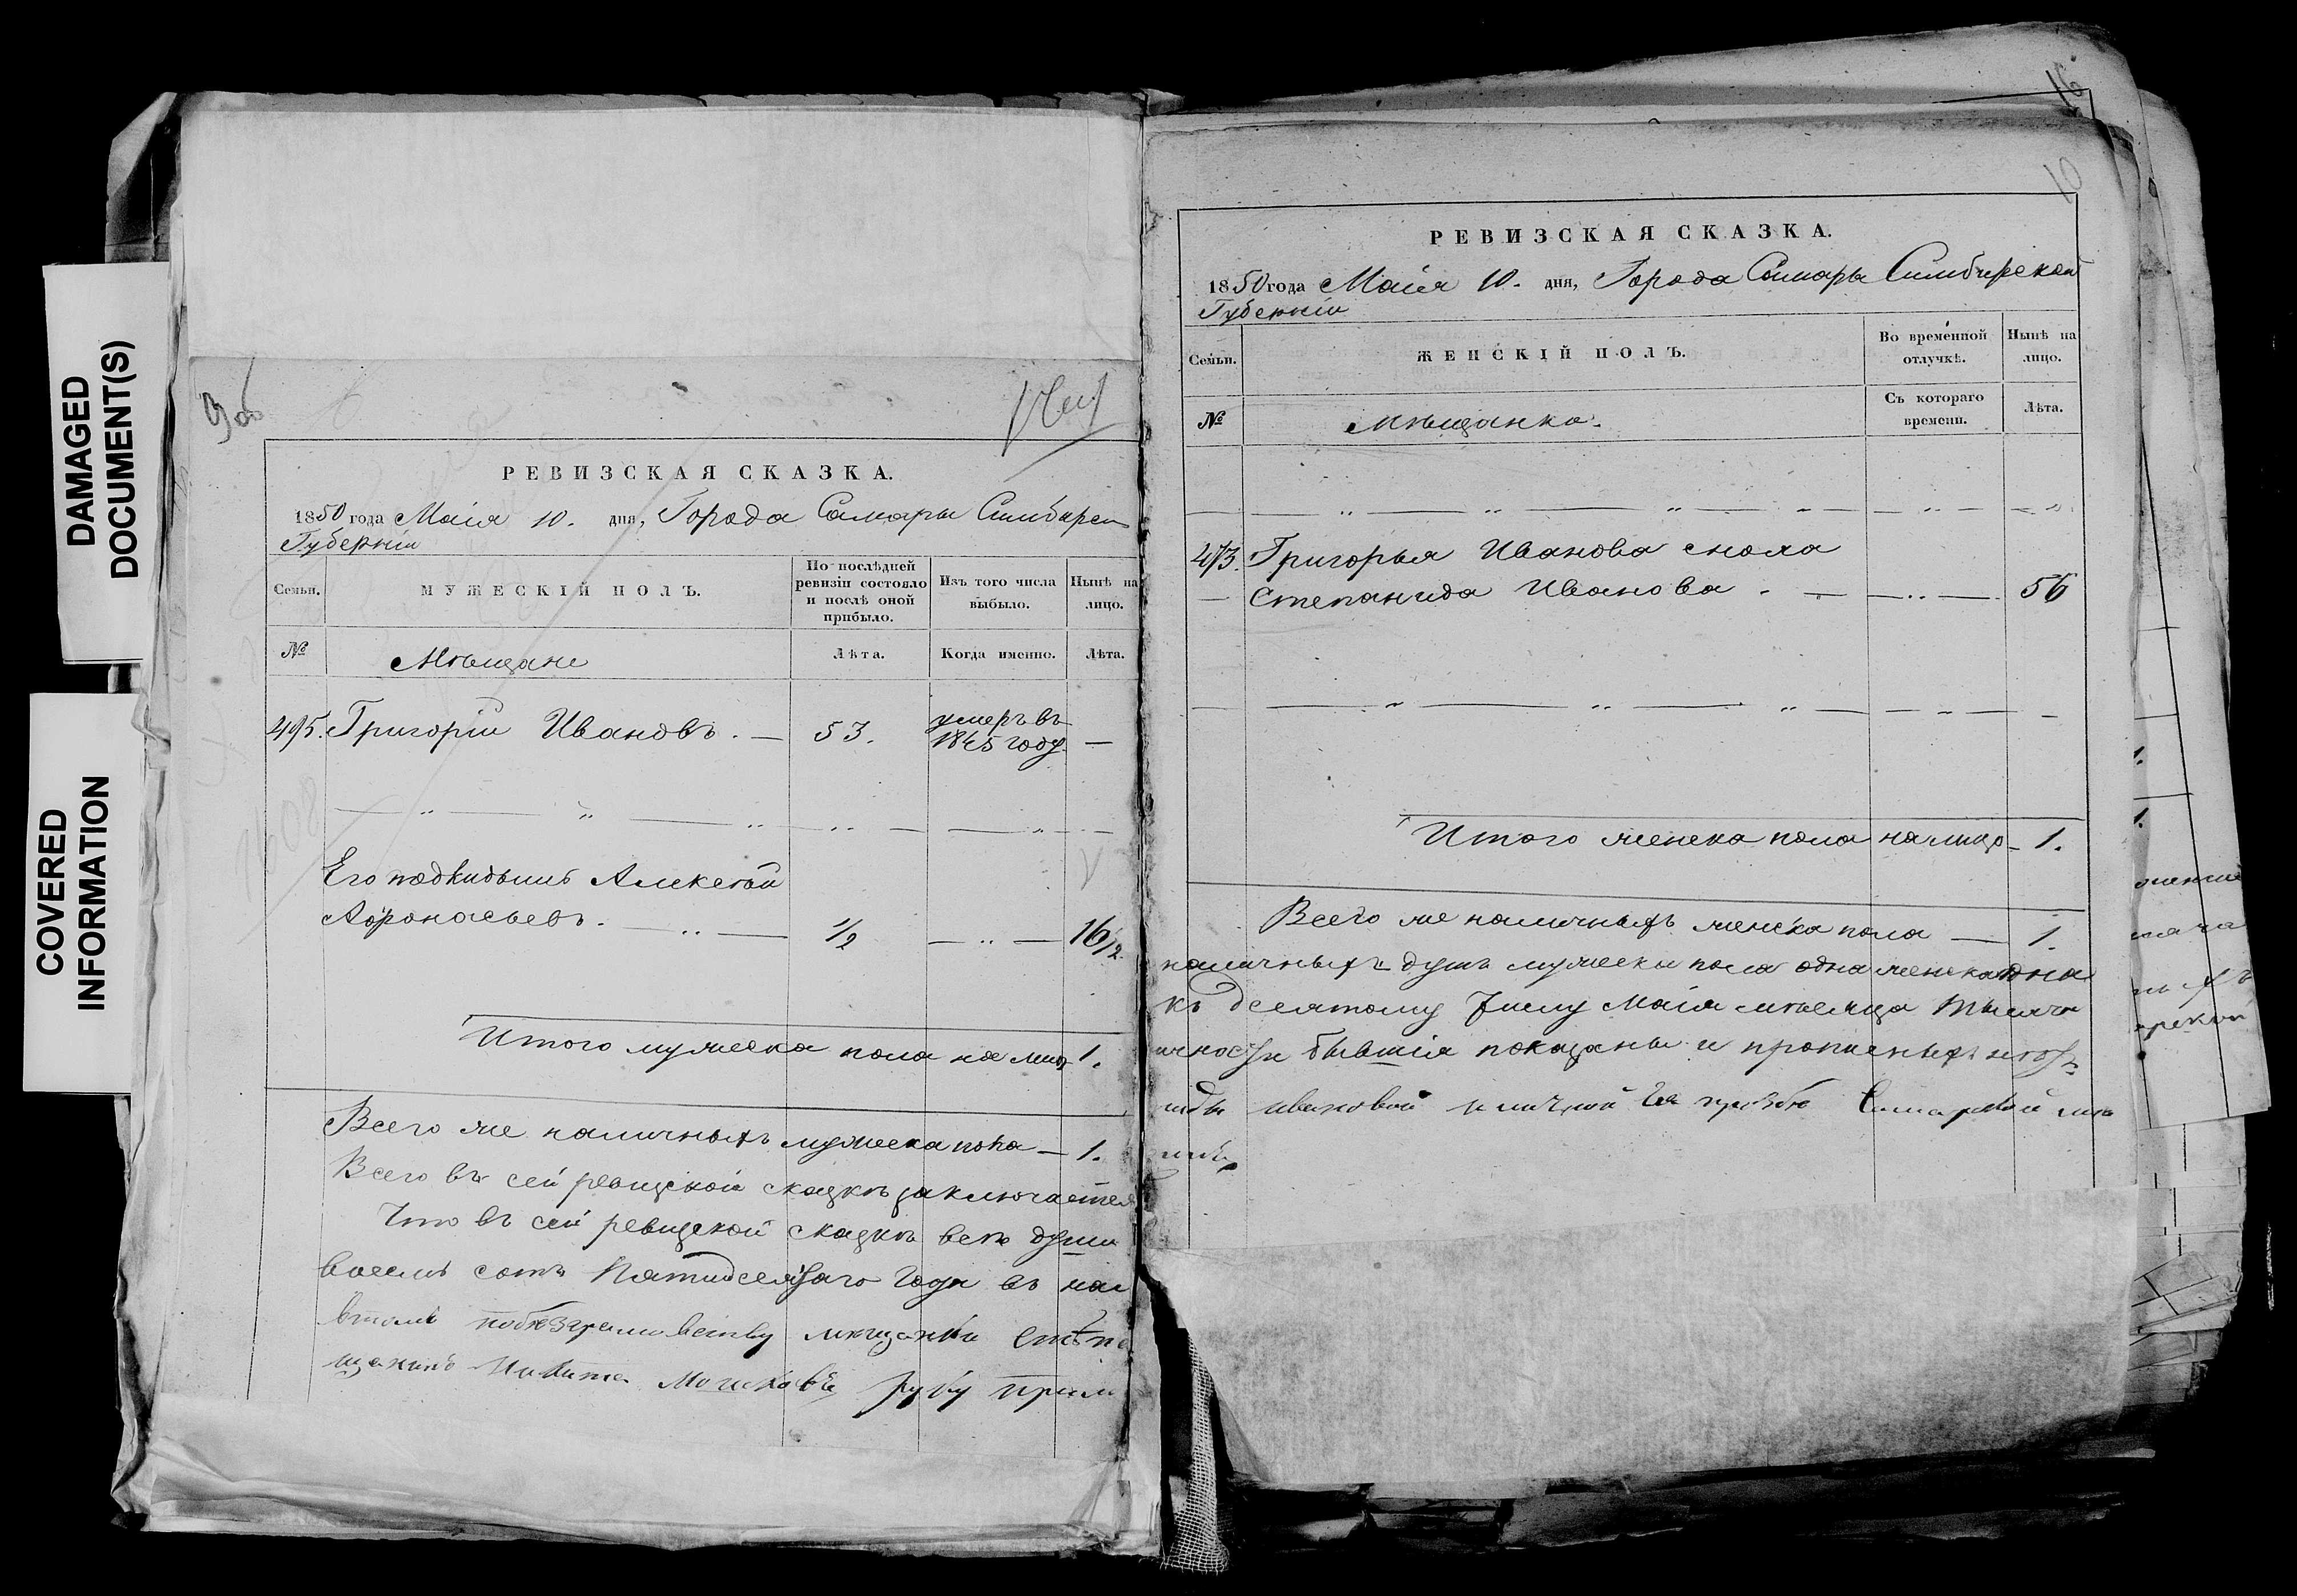 DAMAGED
DOCUMENT(S)
COVERED
INFORMATION
9об
РЕВИЗСКАЯ СКАЗКА.
1850 года Маія 10. дня, Города Самары Симбирск
Губерніи
Семьи.
МУЖЕСКІЙ ПОЛЪ.
По послѣдней
ревизіи состояло
и послѣ оной
прибыло.
Изъ того числа
выбыло.
Нынѣ на
лицо.
№
Мѣщане
Лѣта.
Когда именно.
Лѣта.
495. Григорій Ивановъ. — 53. умеръ въ
1845 году —
Его подкидышъ Алексѣй
Афонасьевъ. — 1/2 — 16 1/2
Итого мужеска пола на лицо 1.
Всего же наличныхъ мужеска пола — 1.
Всего въ сей ревизской сказкѣ заключается
Что въ сей ревизской сказкѣ всѣ души
восемь сотъ Пятидесятаго года въ нал
втомъ мѣщанки Степа
щанинъ Никита руку прил
16
10
РЕВИЗСКАЯ СКАЗКА.
1850 года Маія 10. дня, Города Самары Симбирской
Губерніи
Семьи.
ЖЕНСКІЙ ПОЛЪ.
Во временной
отлучкѣ.
Нынѣ на
лицо.
№
Мѣщанка.
Съ котораго
времени.
Лѣта.
473. Григорья Иванова жена
Степанида Иванова. — 56
Итого женска пола налицо — 1.
Всего же наличныхъ женска пола — 1.
наличныхъ душъ мужеска пола одна женска одна
къ десятому числу Маія мѣсяца тысяча
ичности бывшія показаны и прописныхъ нѣтъ
ниды ивановой и личной Ея прозбѣ Самарской мѣ
1.
1.